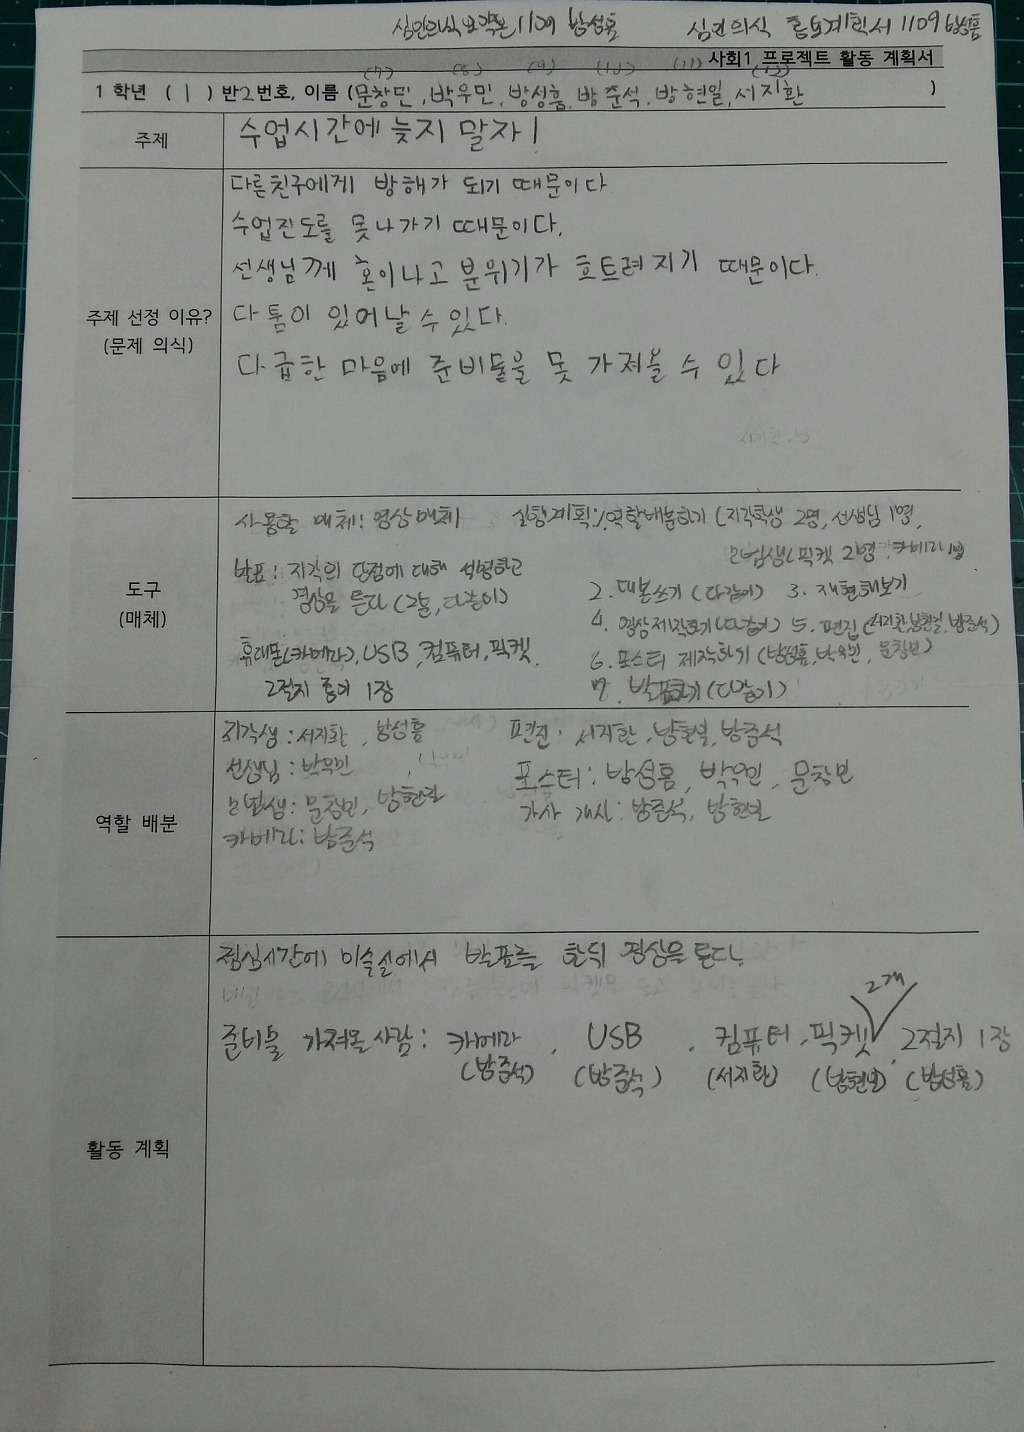 시민의식 요약본 1109 방성흠
시민의식 홍보계획서 1109 방성흠
사회1 프로젝트 활동 계획서
(7) (8) (9) (10) (11) (12)
1 학년 ( 1 ) 반2번호, 이름 (문창민, 박우민, 방성흠, 방준석, 방현일, 서지환 )
주제
수업시간에 늦지 말자!
주제 선정 이유?
(문제 의식)
다른친구에게 방해가 되기 때문이다
수업진도를 못나가기 때문이다.
선생님께 혼이나고 분위기가 흐트려지기 때문이다.
다툼이 있어날 수 있다.
다급한 마음에 준비물을 못 가져올 수 있다
도구
(매체)
사용할 매체: 영상매체
발표: 지각의 단점에 대해 설명하고
영상을 튼다 (2줄, 다같이)
휴대폰(카메라), USB, 컴퓨터, 픽켓,
2절지 종이 1장
실행계획: 1. 역할배분하기 (지각학생 2명, 선생님 1명,
모범생(픽켓 2명, 카메라 1명
2. 대본쓰기 (다같이) 3. 재현해보기
4. 영상제작하기 (다같이) 5. 편집 (서지환, 방현일, 방준석)
6. 포스터 제작하기 (방성흠, 박우민, 문창민)
7. 발표하기 (다같이)
역할 배분
지각생 : 서지환, 방성흠
선생님 : 박우민
모범생: 문창민, 방현일
카메라: 방준석
편집: 서지환, 방현일, 방준석
포스터: 방성흠, 박우민, 문창민
가사 개사: 방준석, 방현일
활동 계획
점심시간에 미술실에서 발표를 한뒤 영상을 튼다.
2개
준비물 가져올 사람: 카메라, USB, 컴퓨터, 픽켓, 2절지 1장
(방준석) (방준석) (서지환) (방현일) (방성흠)